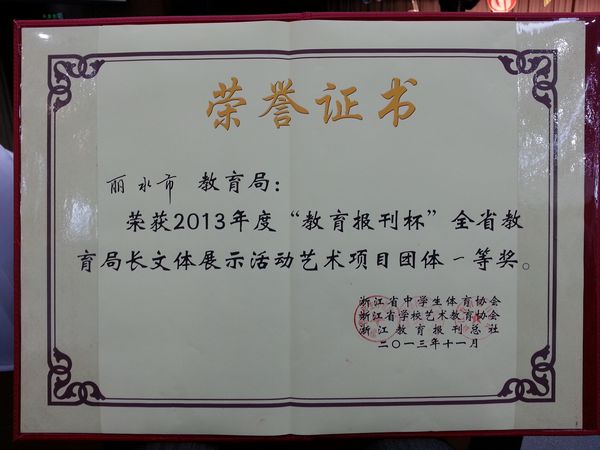 荣誉证书
丽水市 教育局：
荣获2013年度“教育报刊杯”全省教
育局长文体展示活动艺术项目团体一等奖。
浙江省中学生体育协会
浙江省学校艺术教育协会
浙江教育报刊总社
二〇一三年十一月